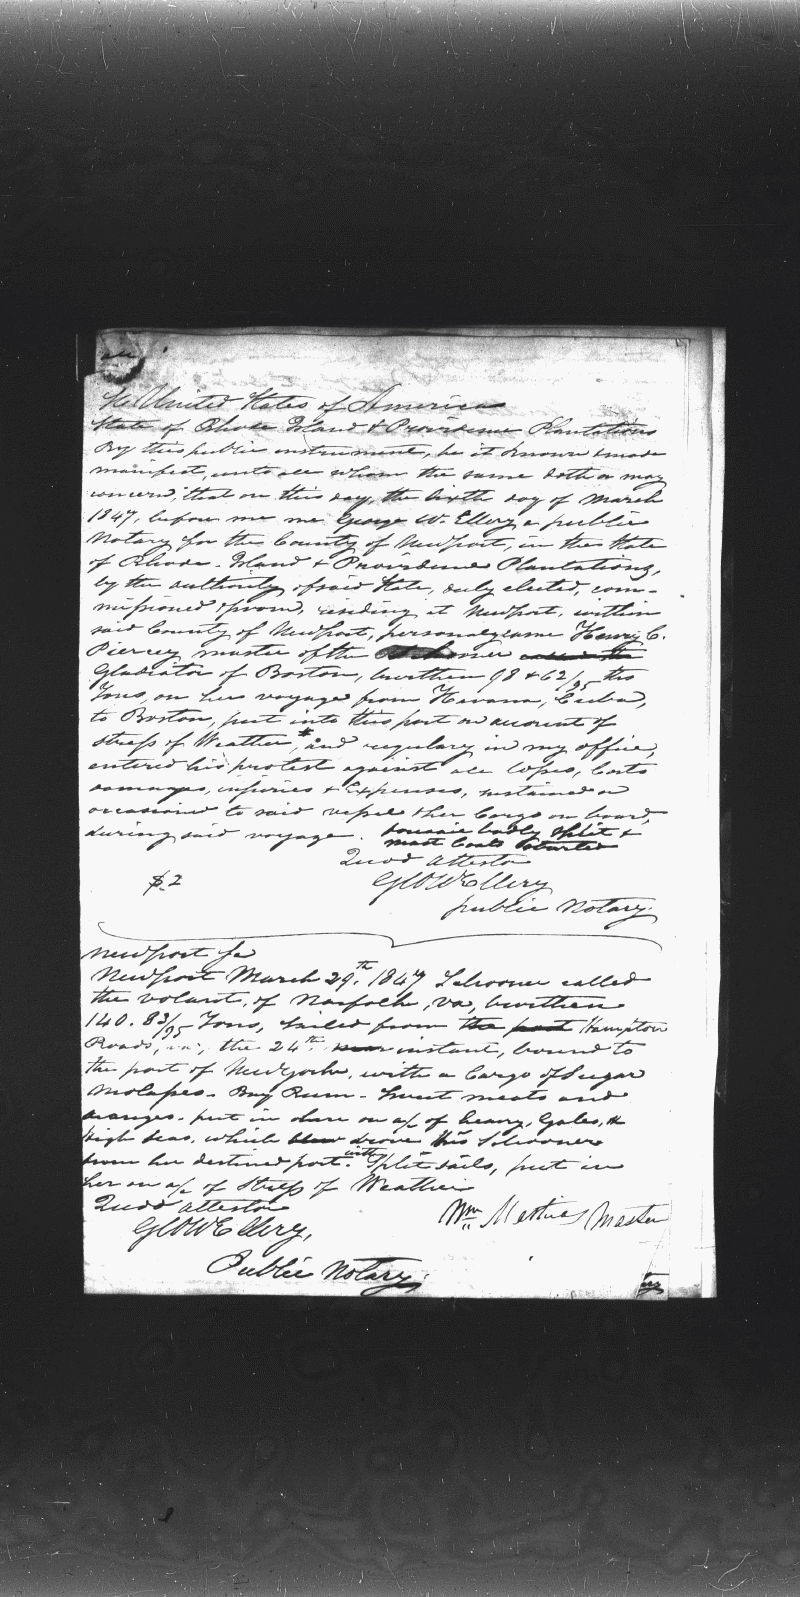 The United States of America
State of Rhode Island & Providence Plantations
By this public instrument, be it known & made
manifest, unto all whom the same doth or may
concern, that on this day, the sixth day of March
1847, before me me George W. Ellery a public
Notary for the County of Newport, in the State
of Rhode-Island & Providence Plantations,
by the authority of said State, duly elected, com-
missioned & sworn, residing at Newport, within
said County of Newport, personaly came Henry C.
Piercey master of the Schooner called the
Gladiator of Boston, burthen 98 & 62/95 ths
Tons, on her voyage from Havana, Cuba,
to Boston, put into this port on account of
stress of Weather, # and regulary in my office,
entered his protest against all losses, Costs
damages, injuries & Expenses, sustained or
occasioned to said vessel & her Cargo on board,
during said voyage.
badly split &
most Coats started
Quod Attestor
GEO W Ellery
public Notary.
$2
Newport Sc
Newport March 29.th 1847 Schooner called
the volant, of Norfolk, va, burthen
140. 83/95 Tons, sailed from the port Hampton
Roads, va, the 24th instant, bound to
the port of New York, with a Cargo of Sugar
Molasses- Bay Rum- Sweet meats and
oranges- put in here on a/c of heavy, Gales, &
high seas, which blew drove this Schooner
from her destined port. with Split sails, put in
her on a/c of Stress of Weather
Quod Attestor
GEO W Ellery,
Public Notary.
Wm Mathias Master